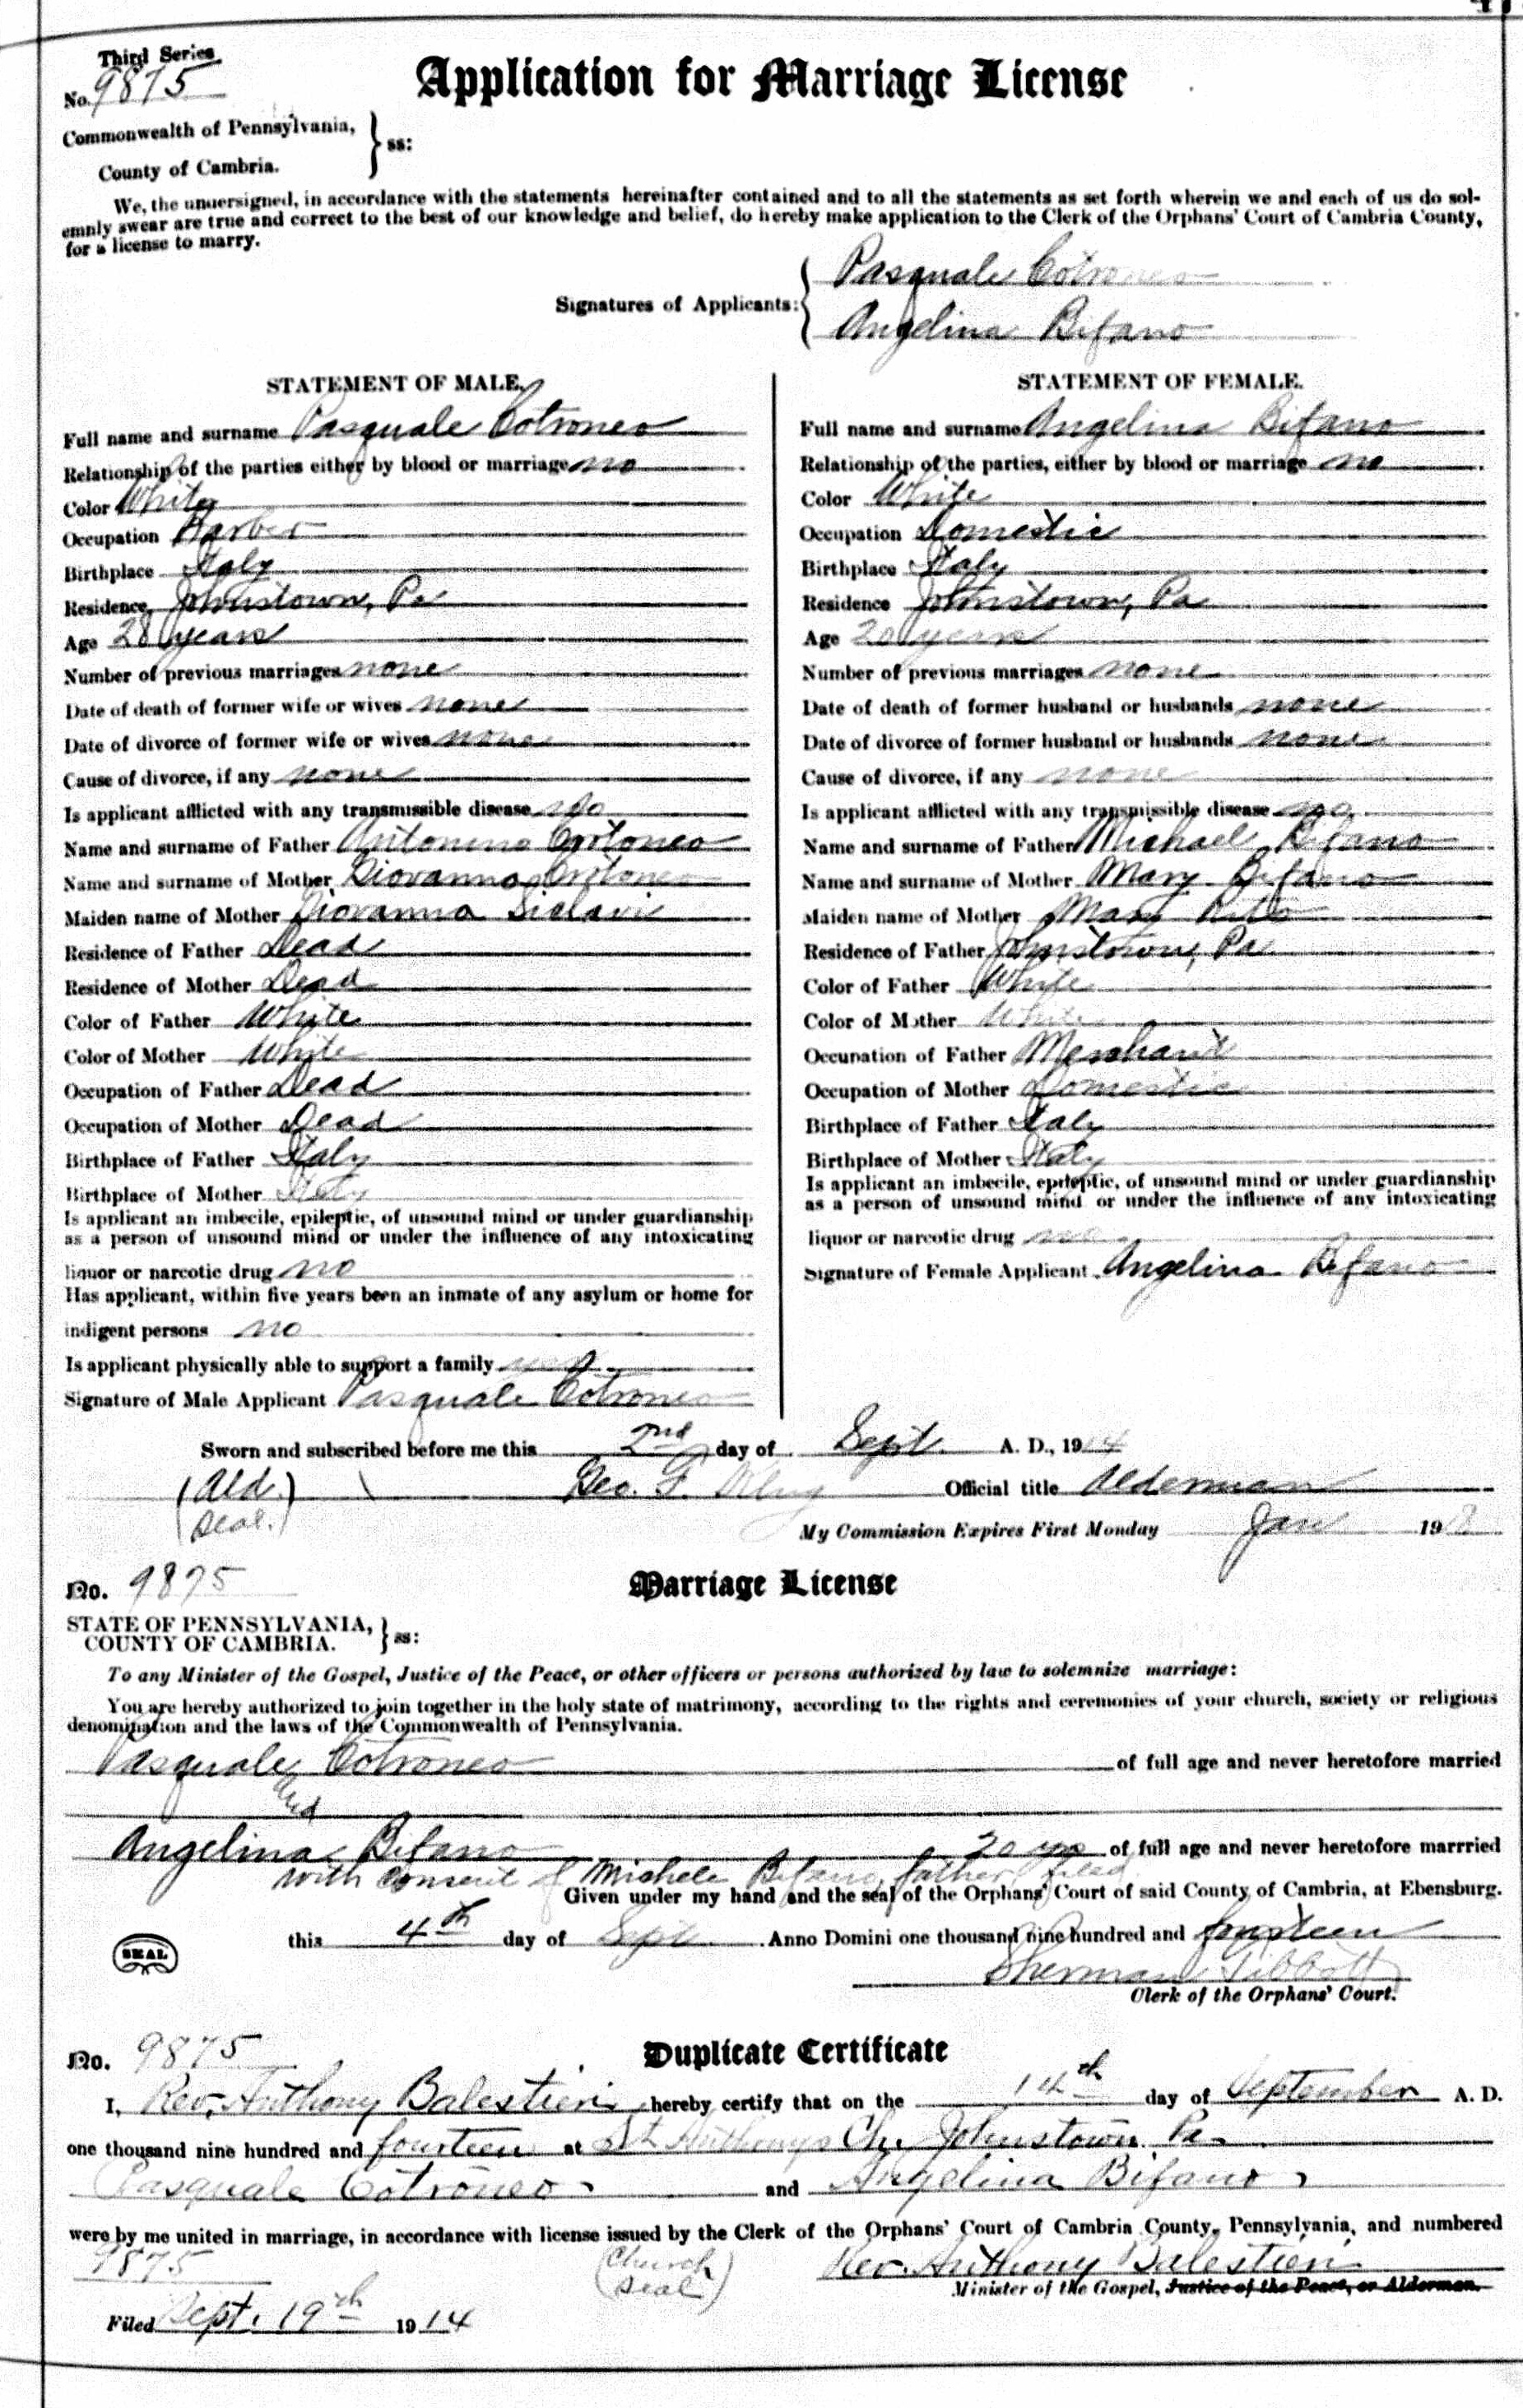 Third Series
No. 9875
Application for Marriage License
Commonwealth of Pennsylvania,
County of Cambria.
ss:
We, the undersigned, in accordance with the statements hereinafter contained and to all the statements as set forth wherein we and each of us do sol-
emnly swear are true and correct to the best of our knowledge and belief, do hereby make application to the Clerk of the Orphans' Court of Cambria County,
for a license to marry.
Signatures of Applicants:
Pasquale Cotroneo
Angelina Bifano
STATEMENT OF MALE.
Full name and surname Pasquale Cotroneo
Relationship of the parties either by blood or marriage no
Color White
Occupation Barber
Birthplace Italy
Residence, Johnstown, Pa
Age 28 years
Number of previous marriages none
Date of death of former wife or wives none
Date of divorce of former wife or wives none
Cause of divorce, if any none
Is applicant afflicted with any transmissible disease no
Name and surname of Father Antonino
Name and surname of Mother Giovanna
Maiden name of Mother Giovanna
Residence of Father Dead
Residence of Mother Dead
Color of Father White
Color of Mother White
Occupation of Father Dead
Occupation of Mother Dead
Birthplace of Father Italy
Birthplace of Mother Italy
Is applicant an imbecile, epileptic, of unsound mind or under guardianship
as a person of unsound mind or under the influence of any intoxicating
liquor or narcotic drug no
Has applicant, within five years been an inmate of any asylum or home for
indigent persons no
Is applicant physically able to support a family yes
Signature of Male Applicant Pasquale Cotroneo
STATEMENT OF FEMALE.
Full name and surname Angelina Bifano
Relationship of the parties, either by blood or marriage no
Color White
Occupation Domestic
Birthplace Italy
Residence Johnstown, Pa
Age 20 years
Number of previous marriages none
Date of death of former husband or husbands none
Date of divorce of former husband or husbands none
Cause of divorce, if any none
Is applicant afflicted with any transmissible disease no
Name and surname of Father Michael Bifano
Name and surname of Mother Mary Bifano
Maiden name of Mother Mary
Residence of Father Johnstown, Pa
Color of Father White
Color of Mother White
Occupation of Father Merchant
Occupation of Mother Domestic
Birthplace of Father Italy
Birthplace of Mother Italy
Is applicant an imbecile, epileptic, of unsound mind or under guardianship
as a person of unsound mind or under the influence of any intoxicating
liquor or narcotic drug no
Signature of Female Applicant Angelina Bifano
Sworn and subscribed before me this 2nd day of Sept. A. D., 1914
(Ald. Seal.)
Geo. F. Official title Alderman
My Commission Expires First Monday Jan 19
No. 9875
Marriage License
STATE OF PENNSYLVANIA,
COUNTY OF CAMBRIA.
ss:
To any Minister of the Gospel, Justice of the Peace, or other officers or persons authorized by law to solemnize marriage:
You are hereby authorized to join together in the holy state of matrimony, according to the rights and ceremonies of your church, society or religious
denomination and the laws of the Commonwealth of Pennsylvania.
Pasquale Cotroneo of full age and never heretofore married
and
Angelina Bifano 20 yrs of full age and never heretofore marrried
with consent of Michele Bifano, father, filed
Given under my hand and the seal of the Orphans' Court of said County of Cambria, at Ebensburg.
SEAL
this 4th day of Sept. Anno Domini one thousand nine hundred and fourteen
Sherman Tibbott
Clerk of the Orphans' Court.
No. 9875
Duplicate Certificate
I, Rev. Anthony Balestieri hereby certify that on the 14th day of September A. D.
one thousand nine hundred and fourteen at St Anthonys Ch. Johnstown Pa.
Pasquale Cotroneo and Angelina Bifano
were by me united in marriage, in accordance with license issued by the Clerk of the Orphans' Court of Cambria County, Pennsylvania, and numbered
9875
(Church Seal)
Rev. Anthony Balestieri
Minister of the Gospel, Justice of the Peace, or Alderman.
Filed Sept. 19th 1914